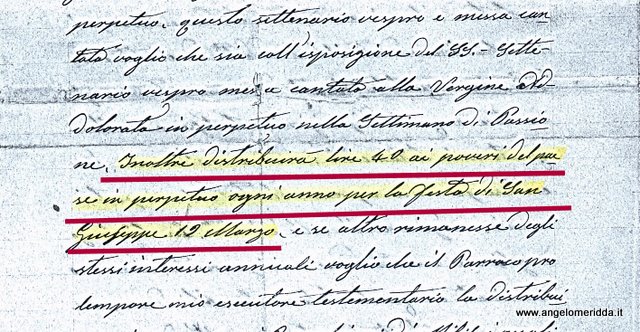 perpetuo, questo settenario vespro e messa can
tata voglio che sia coll'esposizione del SS. - Sette
nario vespro messa cantata alla Vergine Ad
dolorata in perpetuo nella Settimana di Passio
ne. Inoltre distribuirà lire 40 ai poveri del pae
se in perpetuo ogni anno per la festa di San
Giuseppe 19 Marzo, e se altro rimanesse degli
stessi interessi annuali voglio che il Parroco pro
tempore mio esecutore testamentario la distribui
www.angelomeridda.it